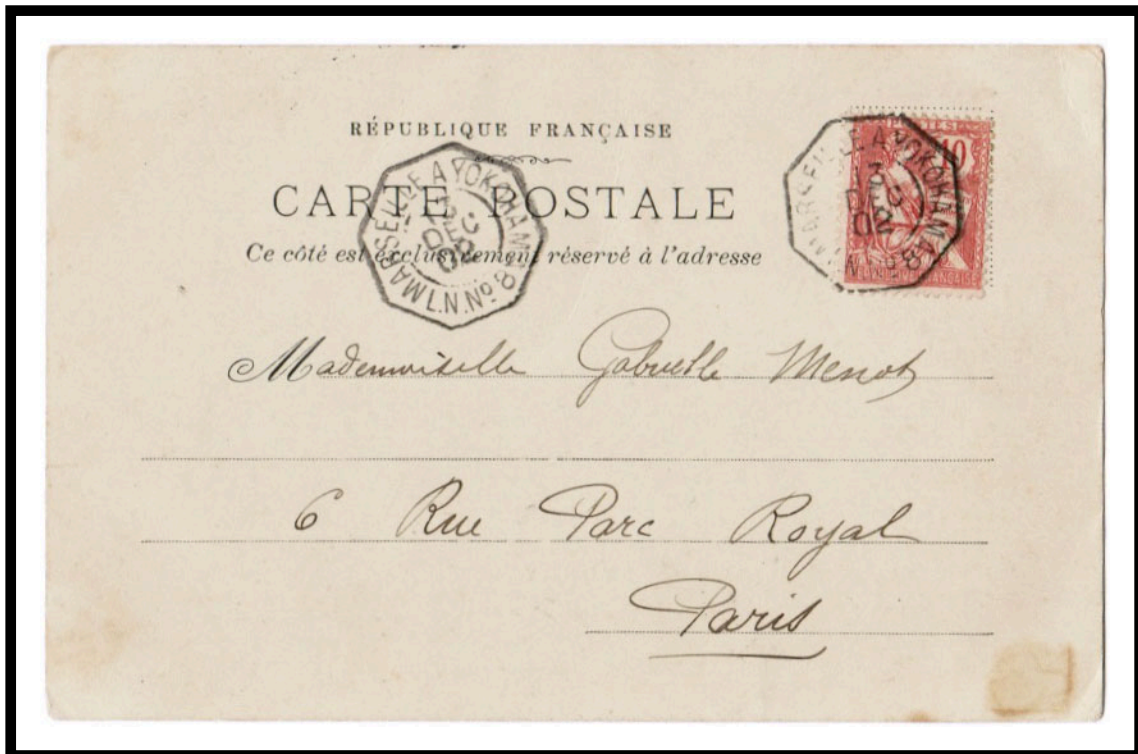 RÉPUBLIQUE FRANÇAISE
CARTE POSTALE
Ce côté est exclusivement réservé à l'adresse
MARSEILLE A YOKOHAMA
L.N. No 8
DEC
02
POSTES
10
MARSEILLE A YOKOHAMA
L.N. No 8
13
DEC
02
Mademoiselle Gabrielle Menot
6 Rue Parc Royal
Paris